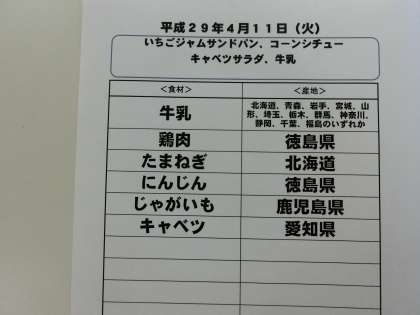 平成29年4月11日（火）
いちごジャムサンドパン、コーンシチュー
キャベツサラダ、牛乳
＜食材＞ ＜産地＞
牛乳 北海道、青森、岩手、宮城、山
形、埼玉、栃木、群馬、神奈川、
静岡、千葉、福島のいずれか
鶏肉 徳島県
たまねぎ 北海道
にんじん 徳島県
じゃがいも 鹿児島県
キャベツ 愛知県